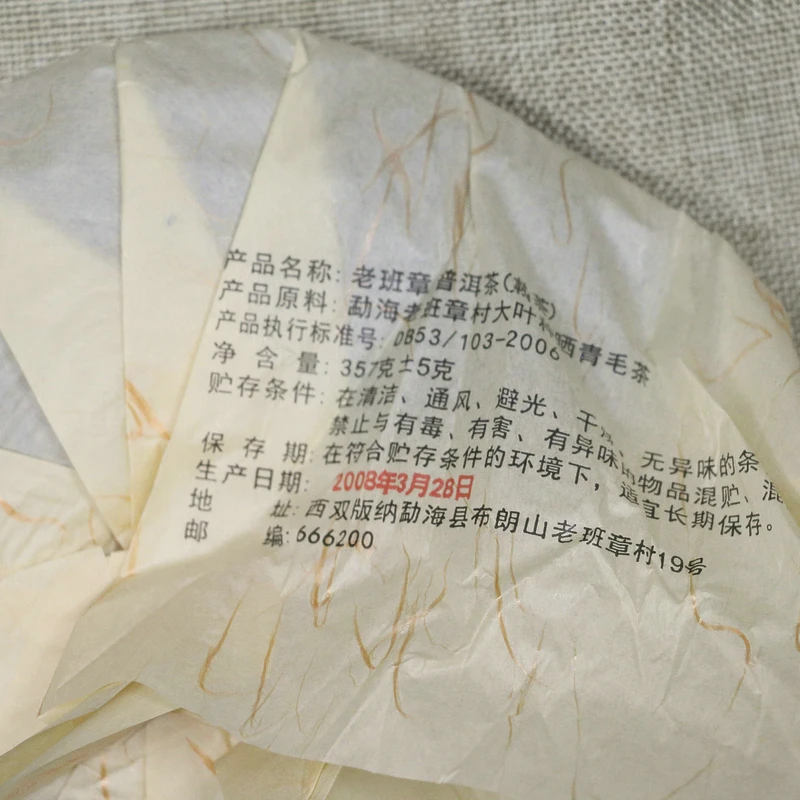 产品名称: 老班章普洱茶(熟茶)
产品原料: 勐海老班章村大叶种晒青毛茶
产品执行标准号: DB53/103-2006
净含量: 357克±5克
贮存条件: 在清洁、通风、避光、干燥、无异味的条
禁止与有毒、有害、有异味的物品混贮、混
保存期: 在符合贮存条件的环境下，适宜长期保存。
生产日期: 2008年3月28日
地址: 西双版纳勐海县布朗山老班章村19号
邮编: 666200